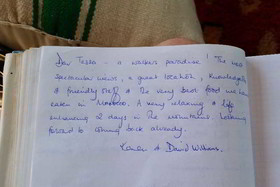 Dar Tassa – a walkers paradise! The two
spectacular views, a great location, knowledgeable
& friendly staff & the very best food we have
eaten in Morocco. A very relaxing & life
enhancing 2 days in the mountains. Looking
forward to coming back already.
Karen & David Williams.